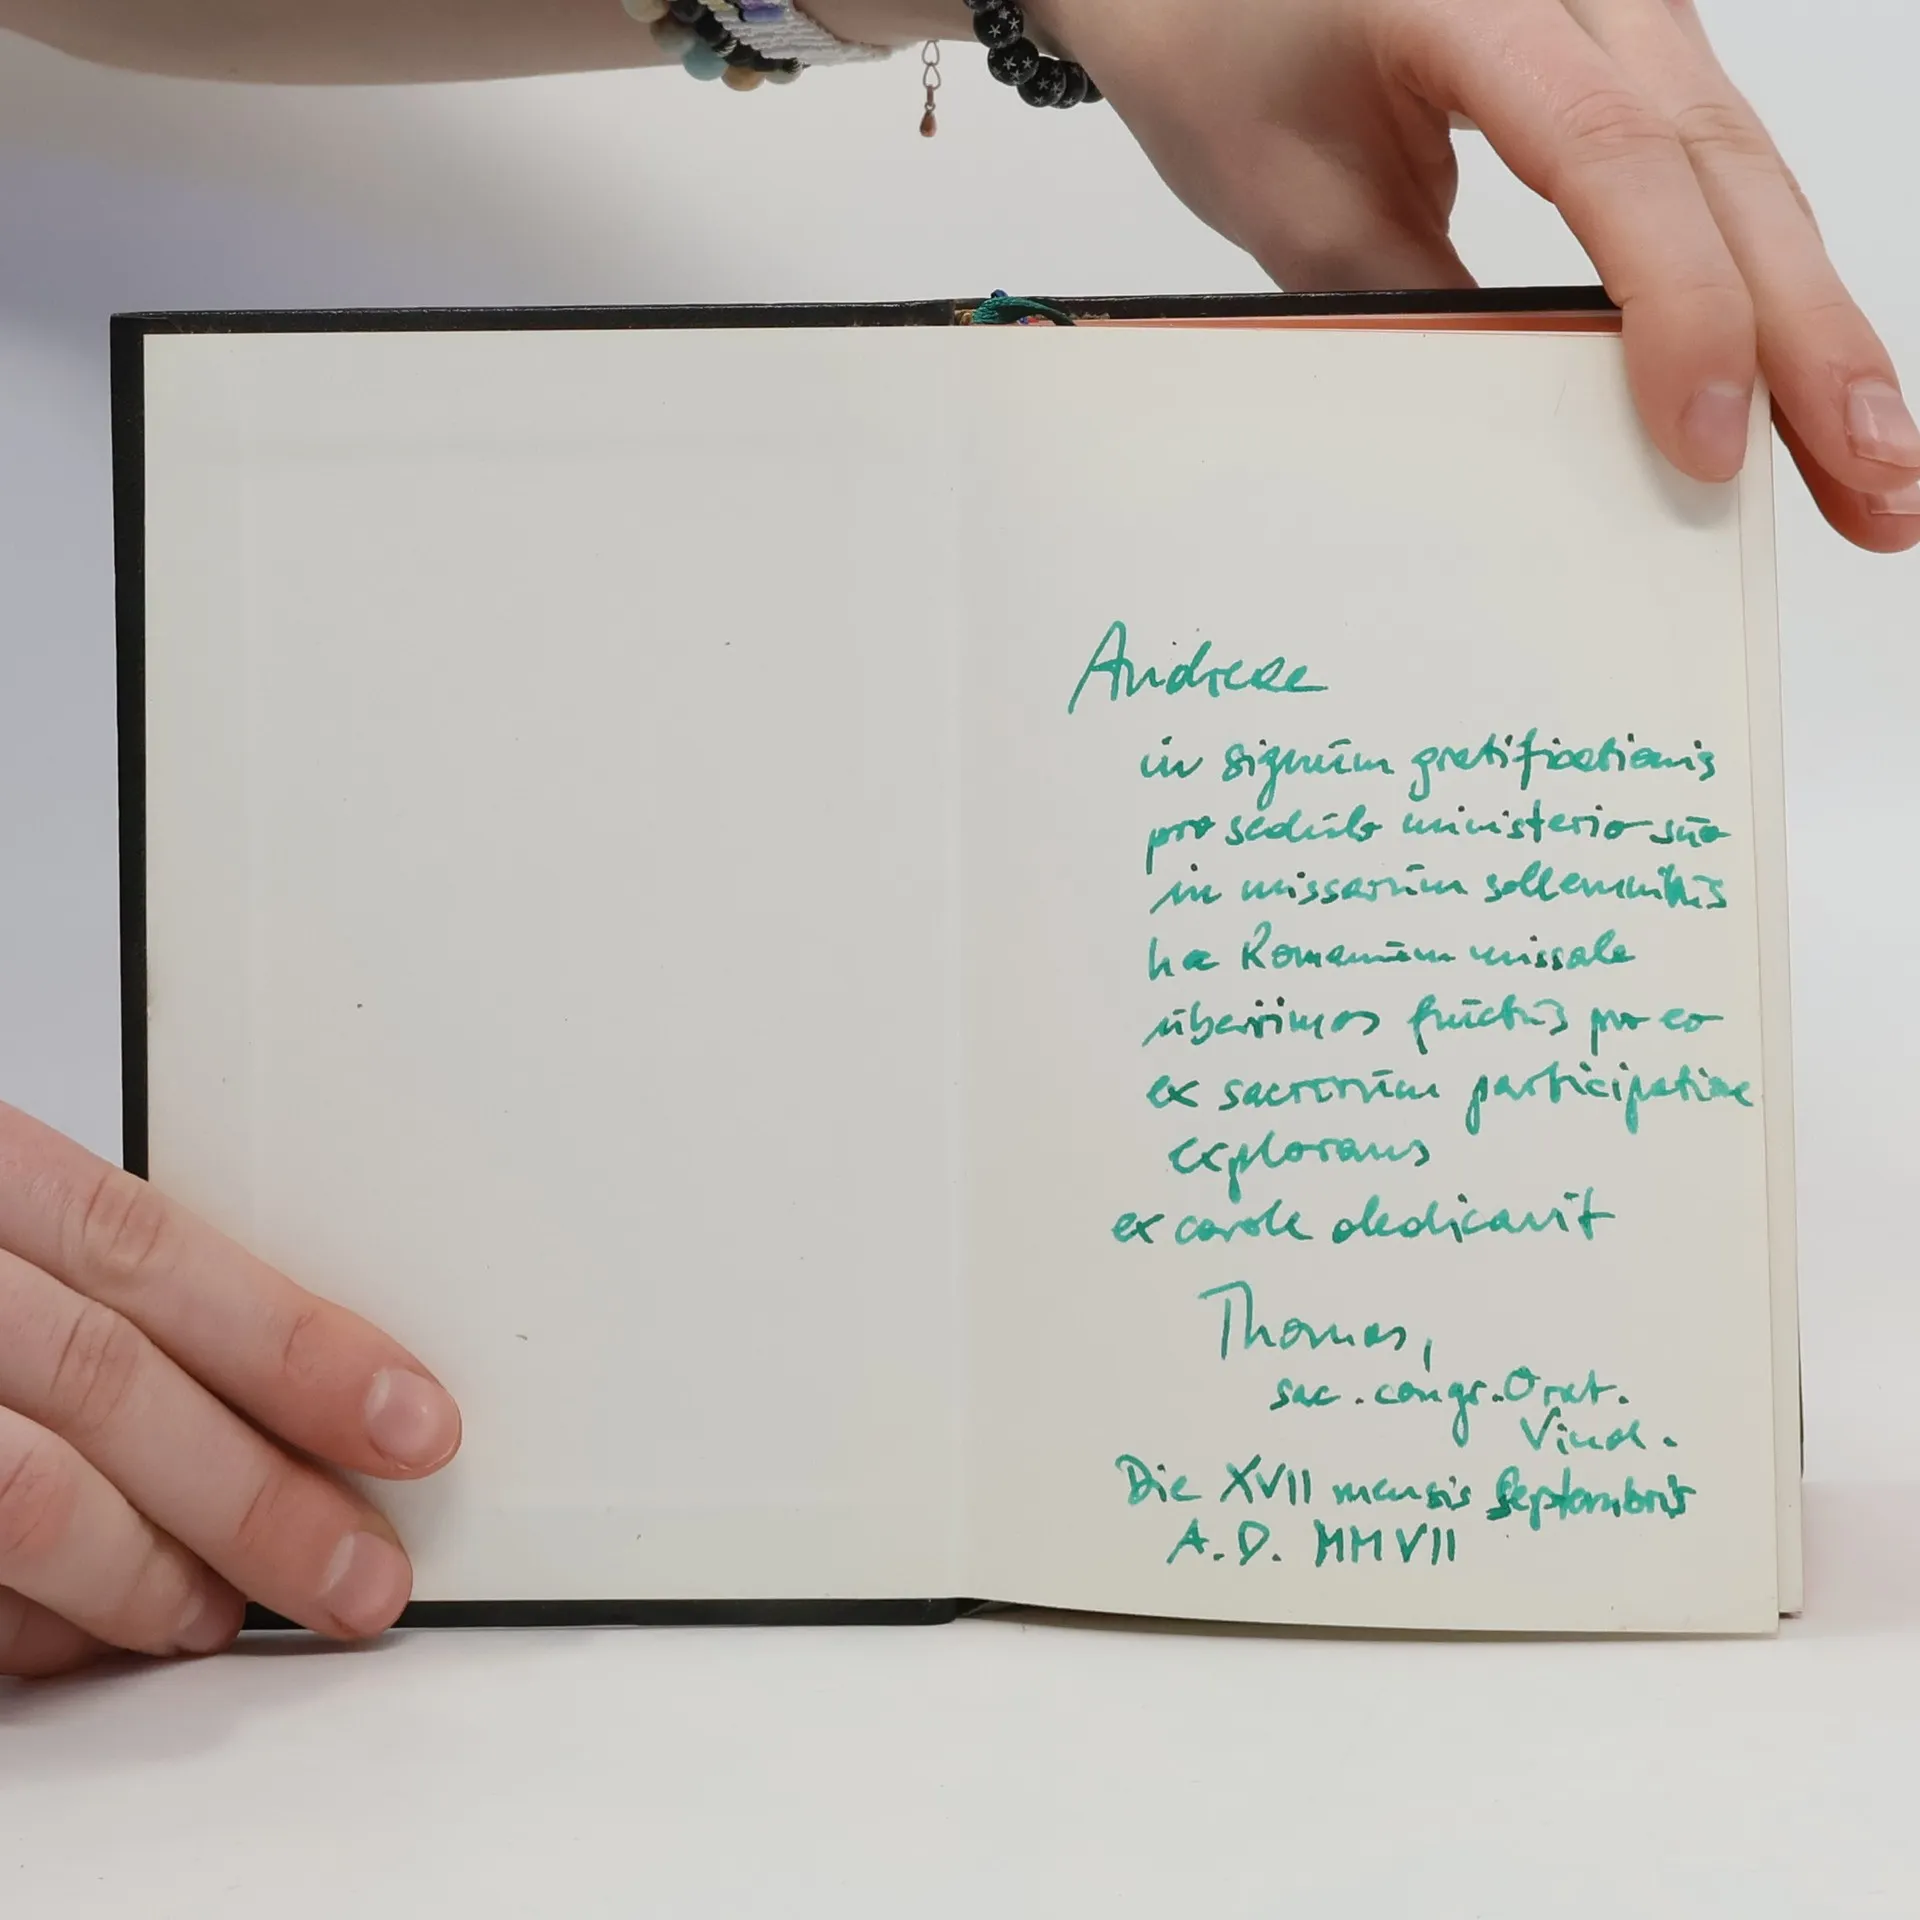 Andreae
in signum gratificationis
pro sedulo ministerio suo
in missarum sollemnibus
hoc Romanum missale
uberrimos fructus pro eo
ex sacrorum participatione
explorans
ex corde dedicavit
Thomas,
sac. congr. Orat.
Vind.
Die XVII mensis Septembris
A.D. MMVII